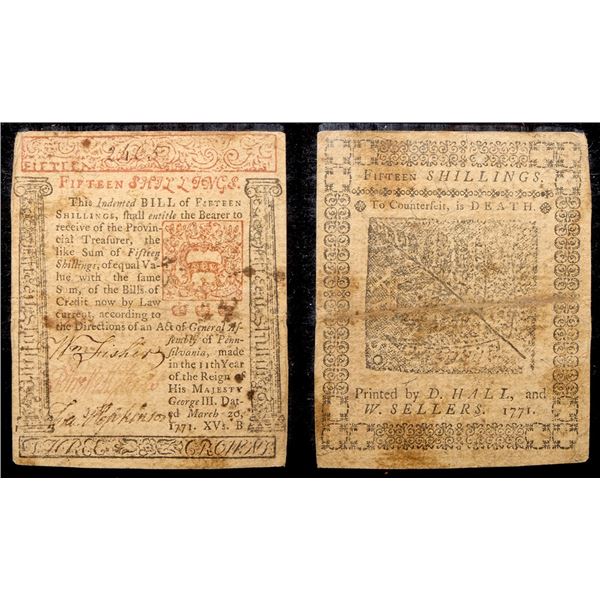 FIFTEEN SHILLINGS.
This Indented BILL of FIFTEEN
SHILLINGS, shall entitle the Bearer to
receive of the Provin-
cial Treasurer, the
like Sum of Fifteen
Shillings, of equal Va-
lue with the same
Sum, of the Bills of
Credit now by Law
current, according to
the Directions of an Act of General As-
sembly of Penn-
sylvania, made
in the 11th Year
of the Reign of
His MAJESTY
George III. Dat-
ed March 20,
1771. XVs. B
Wm Fisher
Hopkinson
THREE CROWNS
FIFTEEN SHILLINGS.
To Counterfeit, is DEATH.
Printed by D. HALL, and
W. SELLERS. 1771.